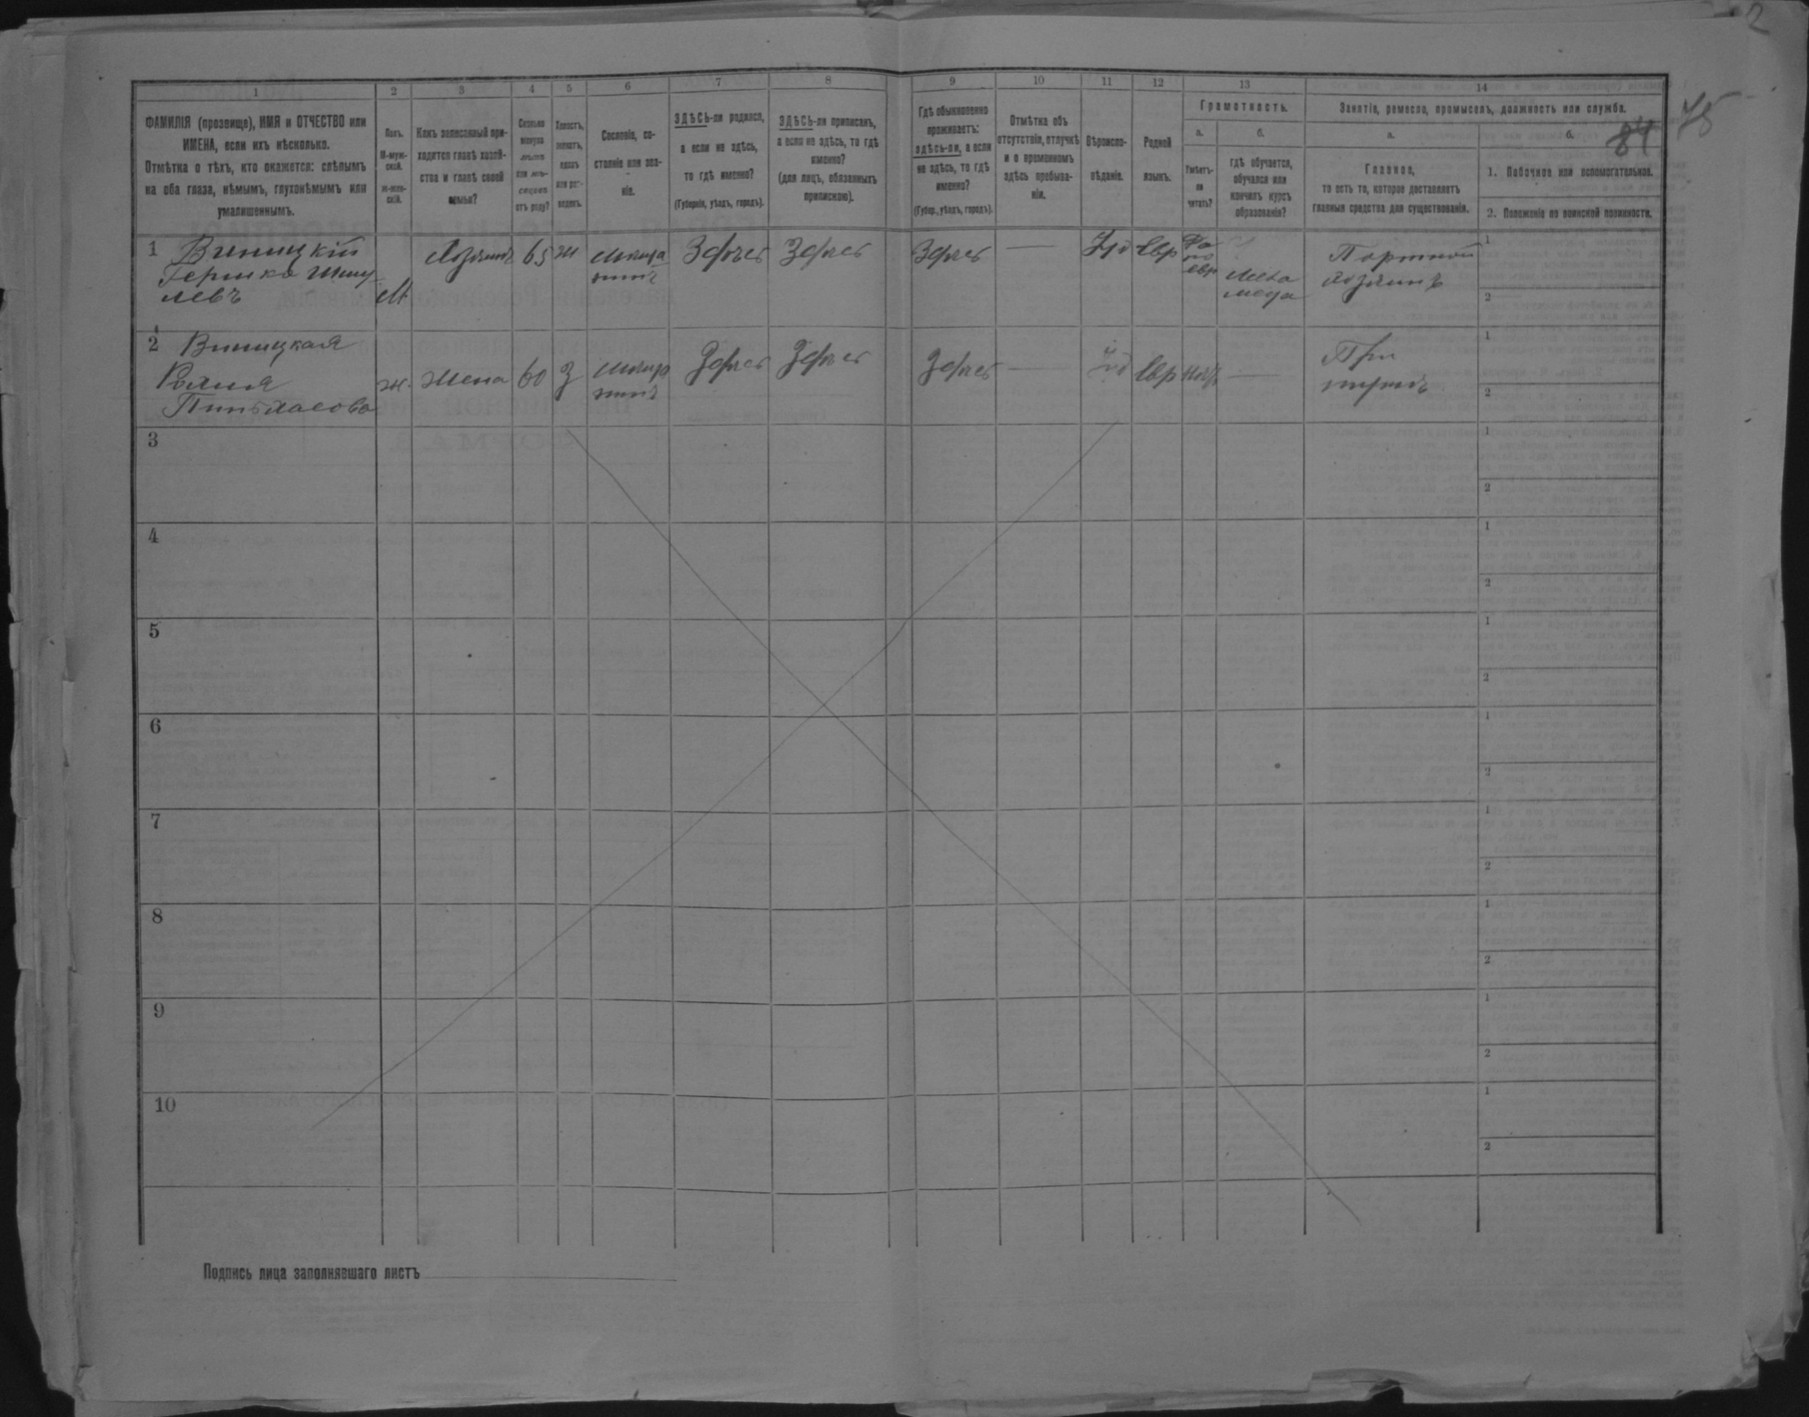 2
1
2
3
4
5
6
7
8
9
10
11
12
13
14
ФАМИЛІЯ (прозвище), ИМЯ и ОТЧЕСТВО или
ИМЕНА, если ихъ нѣсколько.
Отмѣтка о тѣхъ, кто окажется: слѣпымъ
на оба глаза, нѣмымъ, глухонѣмымъ или
умалишеннымъ.
Полъ.
М-муж-
ской.
ж-жен-
скій.
Какъ записанный при-
ходится главѣ хозяй-
ства и главѣ своей
семьи?
Сколько
минуло
лѣтъ
или мѣ-
сяцевъ
отъ роду?
Холостъ,
женатъ,
вдовъ
или раз-
веденъ.
Сословіе, со-
стояніе или зва-
ніе.
ЗДѢСЬ-ли родился,
а если не здѣсь,
то гдѣ именно?
(Губернія, уѣздъ, городъ).
ЗДѢСЬ-ли приписанъ,
а если не здѣсь, то гдѣ
именно?
(для лицъ, обязанныхъ
припискою).
Гдѣ обыкновенно
проживаетъ:
здѣсь-ли, а если
не здѣсь, то гдѣ
именно?
(Губер., уѣздъ, городъ).
Отмѣтка объ
отсутствіи, отлучкѣ
и о временномъ
здѣсь пребыва-
ніи.
Вѣроиспо-
вѣданіе.
Родной
языкъ.
Грамотность.
а.
б.
Умѣетъ-
ли
читать?
гдѣ обучается,
обучался или
кончилъ курсъ
образованія?
Занятіе, ремесло, промыселъ, должность или служба.
а.
б.
Главное,
то есть то, которое доставляетъ
главныя средства для существованія.
1. Побочное или вспомогательное.
2. Положеніе по воинской повинности.
84
75
1
Виницкій
Гершко Шму
левъ
М
Хозяинъ
65
ж
мѣща
нинъ
Здѣсь
Здѣсь
Здѣсь
—
Іуд
Евр
евр
Портной
хозяинъ
1
2
2
Виницкая
Пинъхасова
ж.
жена
60
З
Здѣсь
Здѣсь
Здѣсь
—
Іуд
Евр
нѣтъ
—
При
мужѣ
1
2
3
1
2
4
1
2
5
1
2
6
1
2
7
1
2
8
1
2
9
1
2
10
1
2
Подпись лица заполнявшаго листъ